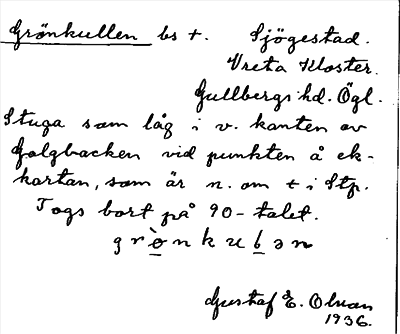 Grönkullen bs †. Sjögestad.
Vreta Kloster.
Gullbergs hd. Ögl.
Stuga som låg i v. kanten av
Galgbacken vid punkten å ek-
kartan, som är n. om t i Stp.
Togs bort på 90-talet.
grònkuḷən
Gustaf E. Olsson
1936.